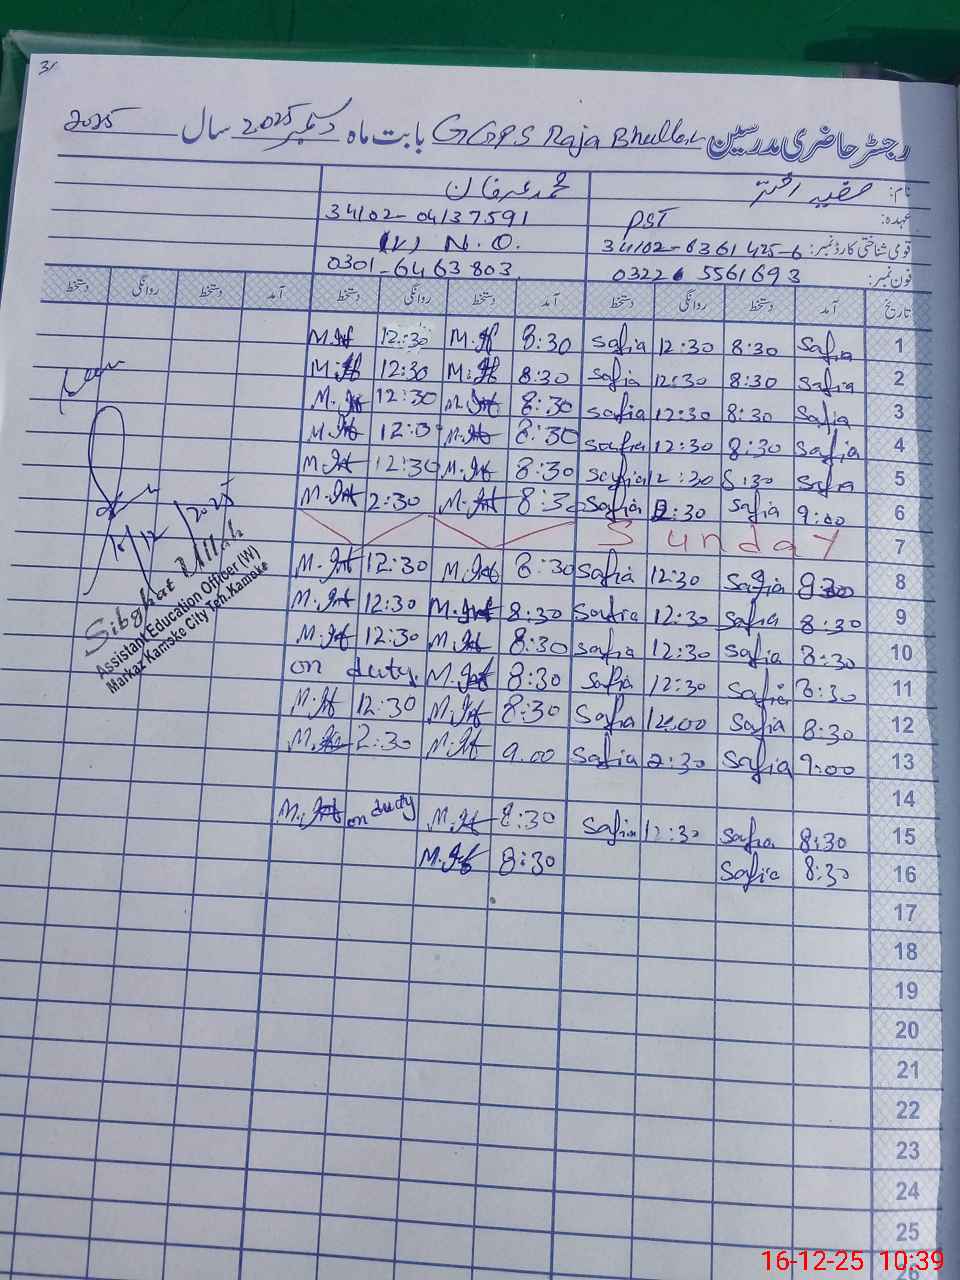 3/
رجسٹر حاضری مدرسین GGPS Raja Bhullar بابت ماہ دسمبر 2025 سال 2025
نام: صفیہ اختر محمد عرفان
عہدہ: PST 34102-04137591
قومی شناختی کارڈ نمبر: 34102-6361425-6 (V) N.O.
فون نمبر: 03226 5561693 0301-6463803
تاریخ آمد دستخط روانگی دستخط آمد دستخط روانگی دستخط آمد دستخط روانگی دستخط
1 Safia 8:30 12:30 Safia 8:30 M.Irf 12:30 M.Irf
2 Safia 8:30 12:30 Safia 8:30 M.Irf 12:30 M.Irf
3 Safia 8:30 12:30 Safia 8:30 M.Irf 12:30 M.Irf
4 Safia 8:30 12:30 Safia 8:30 M.Irf 12:30 M.Irf
5 Safia 8:30 12:30 Safia 8:30 M.Irf 12:30 M.Irf
6 9:00 Safia 2:30 Safia 8:30 M.Irf 2:30 M.Irf
7 Sunday
8 Safia 12:30 Safia 8:30 M.Irf 12:30 M.Irf
9 8:30 Safia 12:30 Safia 8:30 M.Irf 12:30 M.Irf
10 8:30 Safia 12:30 Safia 8:30 M.Irf 12:30 M.Irf
11 8:30 Safia 12:30 Safia 8:30 M.Irf on duty
12 8:30 Safia 12:00 Safia 8:30 M.Irf 12:30 M.Irf
13 9:00 Safia 2:30 Safia 9.00 M.Irf 2:30 M.Irf
14
15 8:30 Safia 12:30 Safia 8:30 M.Irf on duty M.Irf
16 8:30 Safia 8:30 M.Irf
17
18
19
20
21
22
23
24
25
26
/12/2025
Sibghat Ullah
Assistant Education Officer (W)
Markaz Kamoke City Teh. Kamoke
16-12-25 10:39